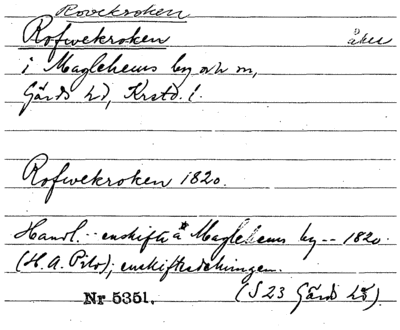 Rovekroken
Rofwekroken åker
i Maglehems by och sn,
Gärds hd, Krstd. l.
Rofwekroken 1820.
Handl. -- enskifte å Maglehems by -- 1820.
(H. A. Pilo); enskiftesdelningen.
Nr 5351. (S 23 Gärds hd).